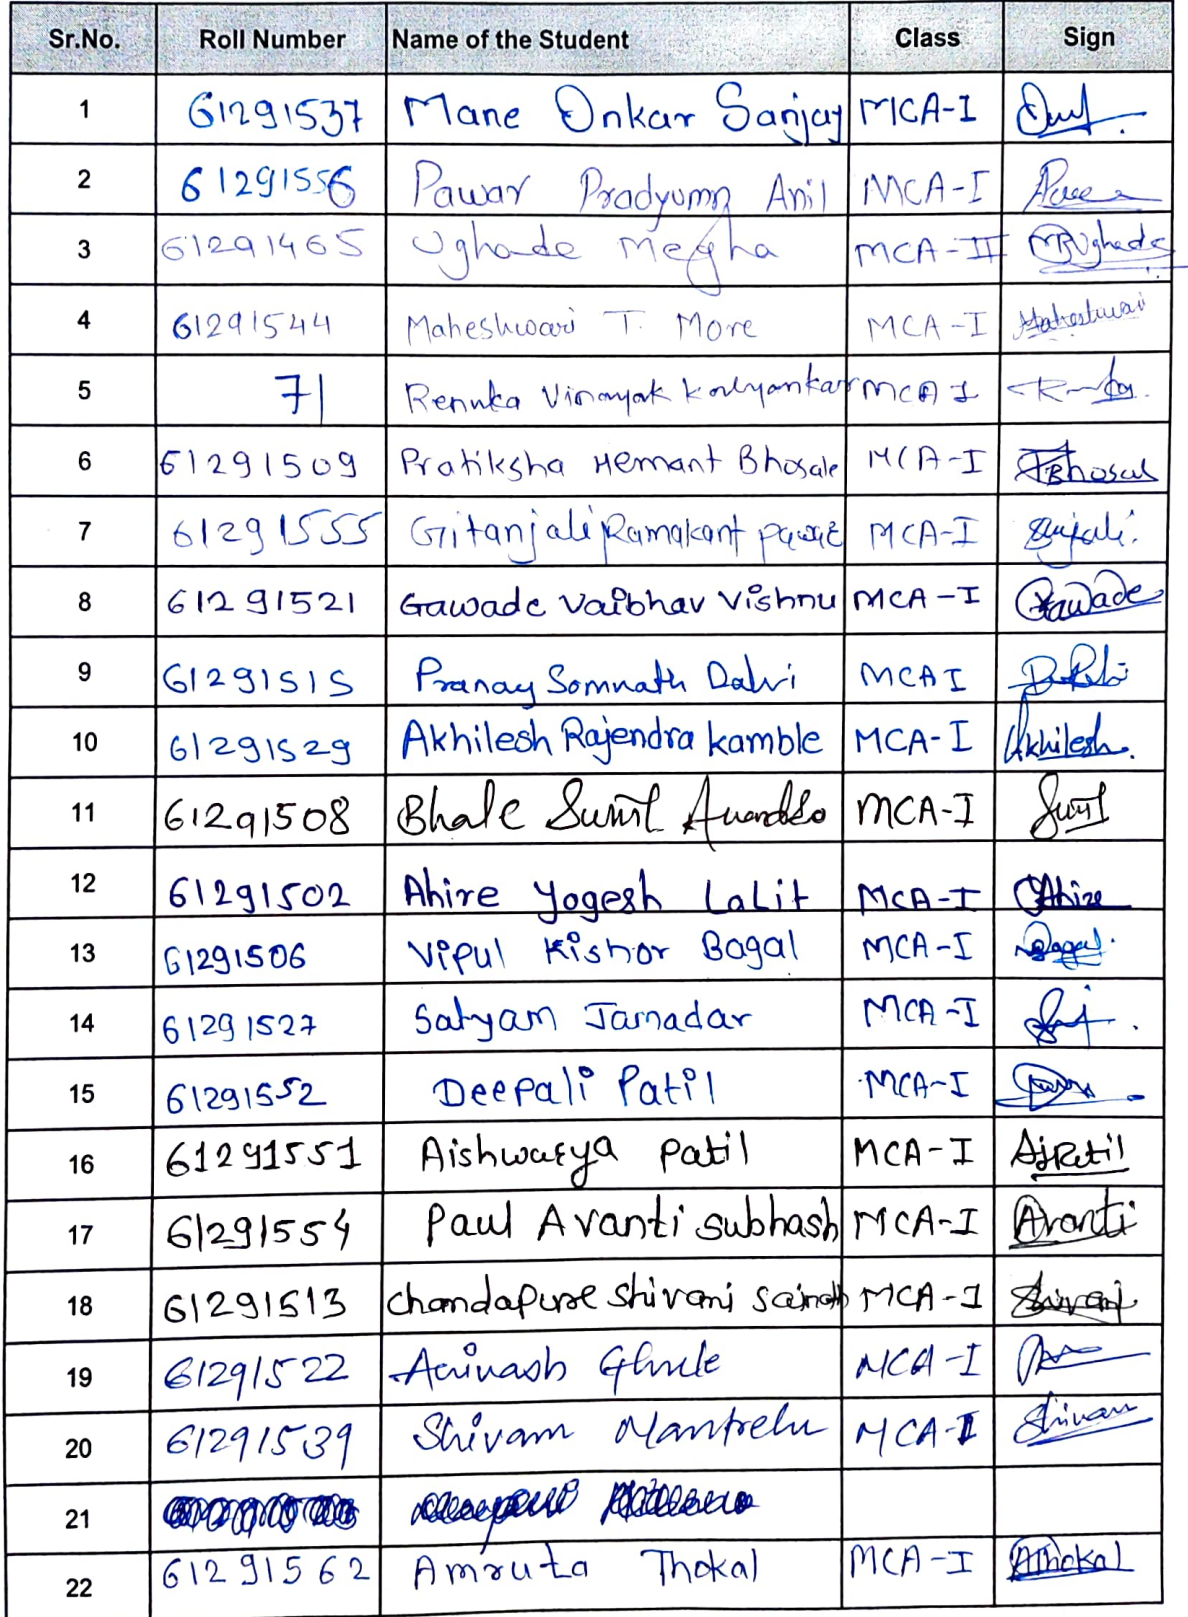 Sr.No. Roll Number Name of the Student Class Sign
1 61291537 Mane Onkar Sanjay MCA-I
2 61291556 Pawar Pradyumn Anil MCA-I
3 61291465 Ughade Megha MCA-II MRUghade
4 61291544 Maheshwari T. More MCA-I Maheshwari
5 71 Renuka Vinayak Kalyankar MCA I
6 61291509 Pratiksha Hemant Bhosale MCA-I Bhosale
7 61291555 Gitanjali Ramakant pawar MCA-I
8 61291521 Gawade Vaibhav Vishnu MCA-I Gawade
9 61291515 Pranay Somnath Dalvi MCA I
10 61291529 Akhilesh Rajendra kamble MCA-I Akhilesh
11 61291508 Bhale Sunil MCA-I Sunil
12 61291502 Ahire Yogesh LaLit MCA-I Ahire
13 61291506 Vipul Kishor Bagal MCA-I Bagal
14 61291527 Satyam Jamadar MCA-I
15 61291552 Deepali Patil MCA-I
16 61291551 Aishwarya Patil MCA-I AjPatil
17 61291554 Paul Avanti subhash MCA-I Avanti
18 61291513 chandapure shivani MCA-I Shivani
19 61291522 Avinash Ghule MCA-I
20 61291539 Shivam MCA-I Shivam
21
22 61291562 Amruta Thokal MCA-I AThokal